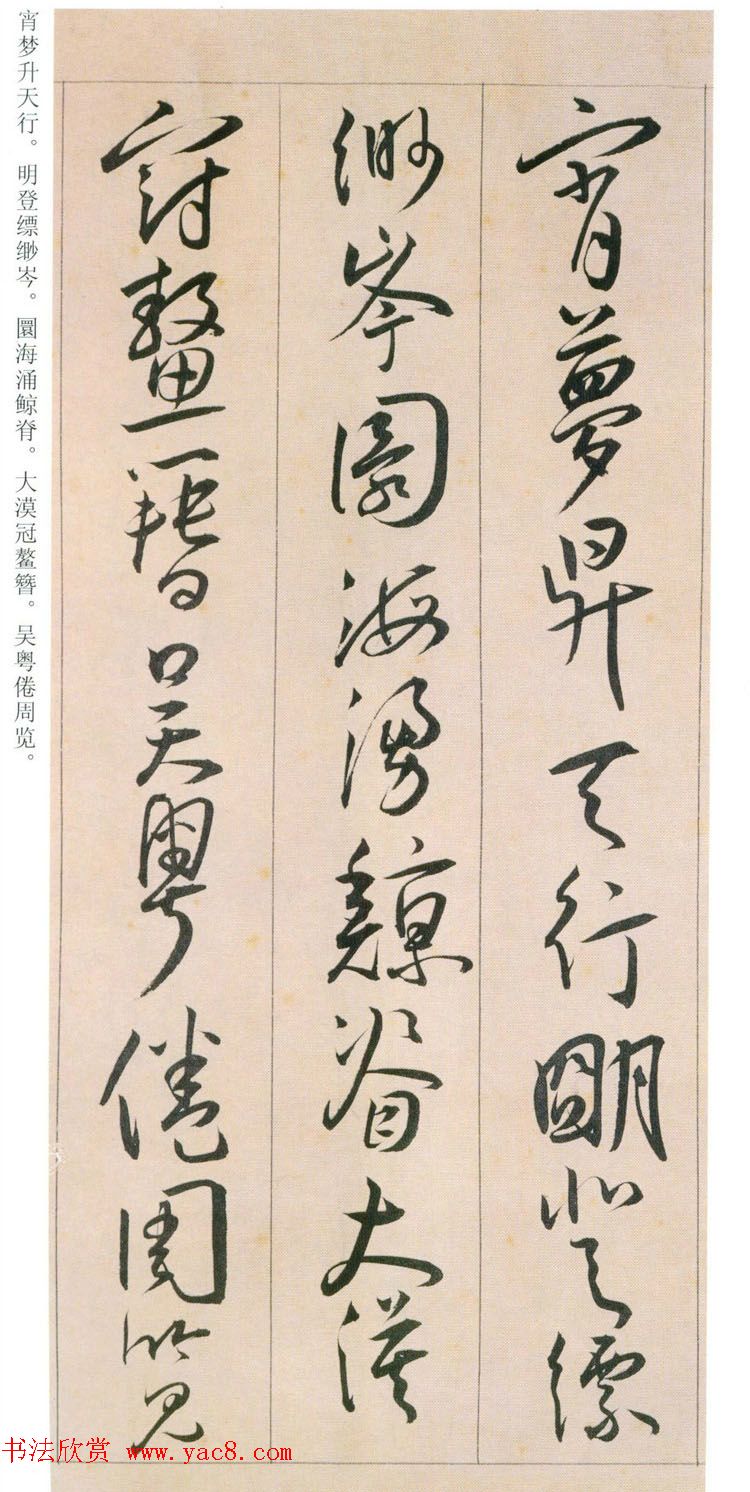 宵夢昇天行明登縹
緲岑圜海湧鯨脊大漠
冠鼇簪吴粤倦周覧
宵梦升天行。明登缥缈岑。圜海涌鲸脊。大漠冠鳌簪。吴粤倦周览。
书法欣赏 www.yac8.com